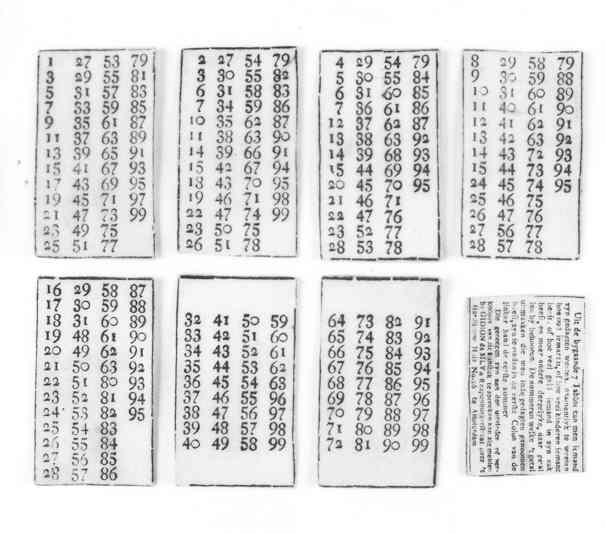 1 27 53 79
3 29 55 81
5 31 57 83
7 33 59 85
9 35 61 87
11 37 63 89
13 39 65 91
15 41 67 93
17 43 69 95
19 45 71 97
21 47 73 99
23 49 75
25 51 77
2 27 54 79
3 30 55 82
6 31 58 83
7 34 59 86
10 35 62 87
11 38 63 90
14 39 66 91
15 42 67 94
18 43 70 95
19 46 71 98
22 47 74 99
23 50 75
26 51 78
4 29 54 79
5 30 55 84
6 31 60 85
7 36 61 86
12 37 62 87
13 38 63 92
14 39 68 93
15 44 69 94
20 45 70 95
21 46 71
22 47 76
23 52 77
28 53 78
8 29 58 79
9 30 59 88
10 31 60 89
11 40 61 90
12 41 62 91
13 42 63 92
14 43 72 93
15 44 73 94
24 45 74 95
25 46 75
26 47 76
27 56 77
28 57 78
16 29 58 87
17 30 59 88
18 31 60 89
19 48 61 90
20 49 62 91
21 50 63 92
22 51 80 93
23 52 81 94
24 53 82 95
25 54 83
26 55 84
27 56 85
28 57 86
32 41 50 59
33 42 51 60
34 43 52 61
35 44 53 62
36 45 54 63
37 46 55 96
38 47 56 97
39 48 57 98
40 49 58 99
64 73 82 91
65 74 83 92
66 75 84 93
67 76 85 94
68 77 86 95
69 78 87 96
70 79 88 97
71 80 89 98
72 81 90 99
Uit de bygaande 7 Tables can men iemand
zyn gedagten
hoe veel geld iemand in zyn zak
heeft, en meer andere dereelyke, daar getal
De nommeren welke 't getal
Colum van de